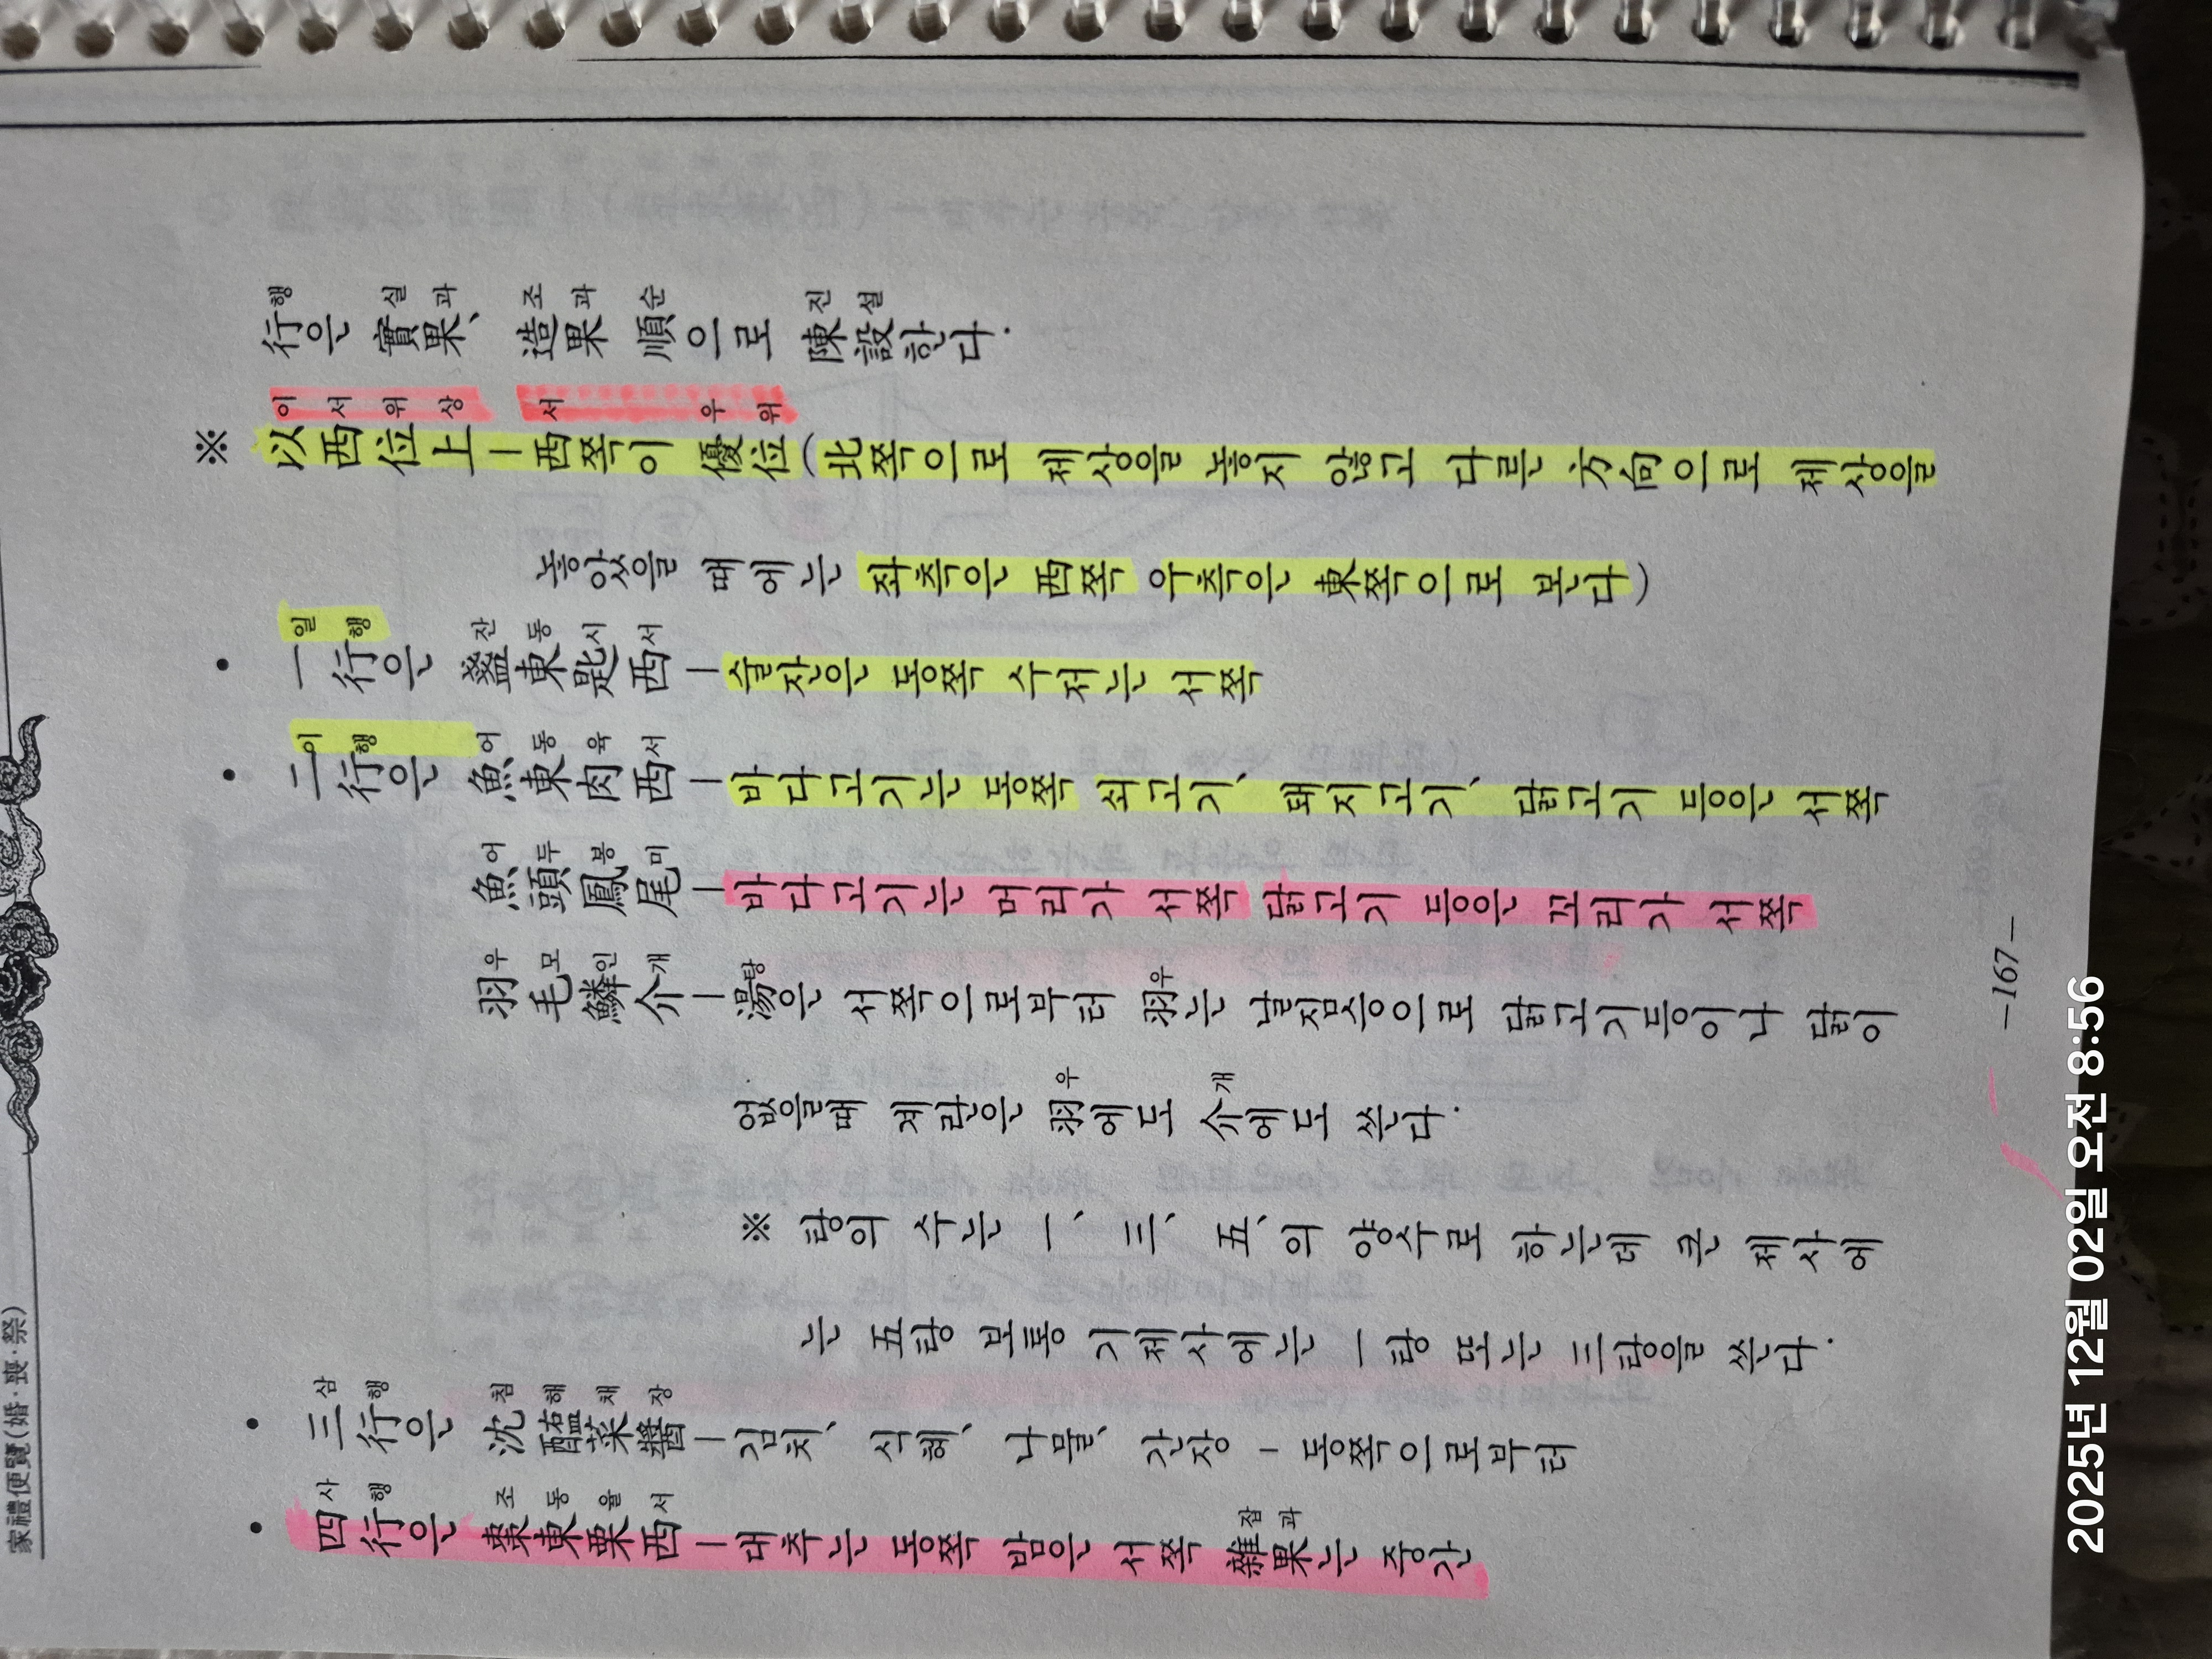 行은 實果、造果 順으로 陳設한다.
행 실과 조과 순 진설
※ 以西位上ㅣ西쪽이 優位(北쪽으로 제상을 놓지 않고 다른 方向으로 제상을
이서위상 서 우위
놓았을 때에는 좌측은 西쪽 우측은 東쪽으로 본다)
• 一行은 盞東匙西ㅣ술잔은 동쪽 수저는 서쪽
일행 잔동시서
• 二行은 魚東肉西ㅣ바다고기는 동쪽 쇠고기、돼지고기、닭고기 등은 서쪽
이행 어동육서
魚頭鳳尾ㅣ바다고기는 머리가 서쪽 닭고기 등은 꼬리가 서쪽
어두봉미
羽毛鱗介ㅣ湯은 서쪽으로부터 羽는 날짐승으로 닭고기등이나 닭이
우모인개 탕 우
없을때 계란은 羽에도 介에도 쓴다.
우 개
※ 탕의 수는 一、三、五、의 양수로 하는데 큰 제사에
는 五탕 보통 기제사에는 一탕 또는 三탕을 쓴다.
• 三行은 沈醢菜醬ㅣ김치、식혜、나물、간장ㅣ동쪽으로부터
삼행 침해채장
• 四行은 棗東栗西ㅣ대추는 동쪽 밤은 서쪽 雜果는 중간
사행 조동율서 잡과
家禮便覽(婚·喪·祭)
-167-
2025년 12월 02일 오전 8:56